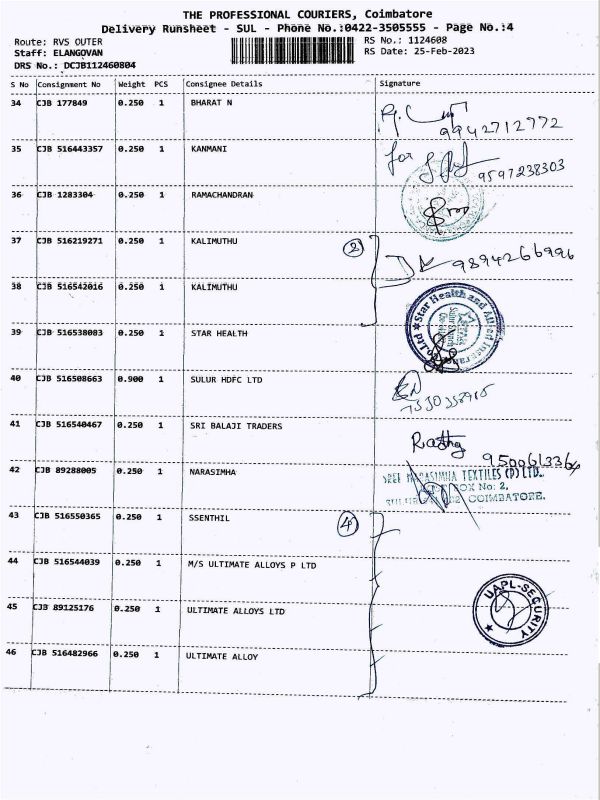 THE PROFESSIONAL COURIERS, Coimbatore
Delivery Runsheet - SUL - Phone No.:0422-3505555 - Page No.:4
Route: RVS OUTER RS No.: 1124608
Staff: ELANGOVAN RS Date: 25-Feb-2023
DRS No.: DCJB112460804
S No Consignment No Weight PCS Consignee Details Signature
34 CJB 177849 0.250 1 BHARAT N
9942712772
35 CJB 516443357 0.250 1 KANMANI
for 9597238303
36 CJB 1283304 0.250 1 RAMACHANDRAN
37 CJB 516219271 0.250 1 KALIMUTHU 2
9894266996
38 CJB 516542016 0.250 1 KALIMUTHU
Star Health and Allied Insurance Co. Ltd
39 CJB 516538003 0.250 1 STAR HEALTH
40 CJB 516508663 0.900 1 SULUR HDFC LTD
41 CJB 516540467 0.250 1 SRI BALAJI TRADERS
42 CJB 89288005 0.250 1 NARASIMHA
SREE NARASIMHA TEXTILES (P) LTD.
BOX No: 2,
COIMBATORE.
43 CJB 516550365 0.250 1 SSENTHIL 4
44 CJB 516544039 0.250 1 M/S ULTIMATE ALLOYS P LTD
UAPL-SECURITY
45 CJB 89125176 0.250 1 ULTIMATE ALLOYS LTD
46 CJB 516482966 0.250 1 ULTIMATE ALLOY